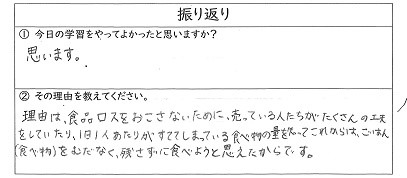 振り返り
① 今日の学習をやってよかったと思いますか?
思います。
② その理由を教えてください。
理由は、食品ロスをおこさないために、売っている人たちがたくさんの工夫
をしていたり、1日1人あたりがすててしまっている食べ物の量を知ってこれからは、ごはん
(食べ物)をむだなく、残さずに食べようと思えたからです。